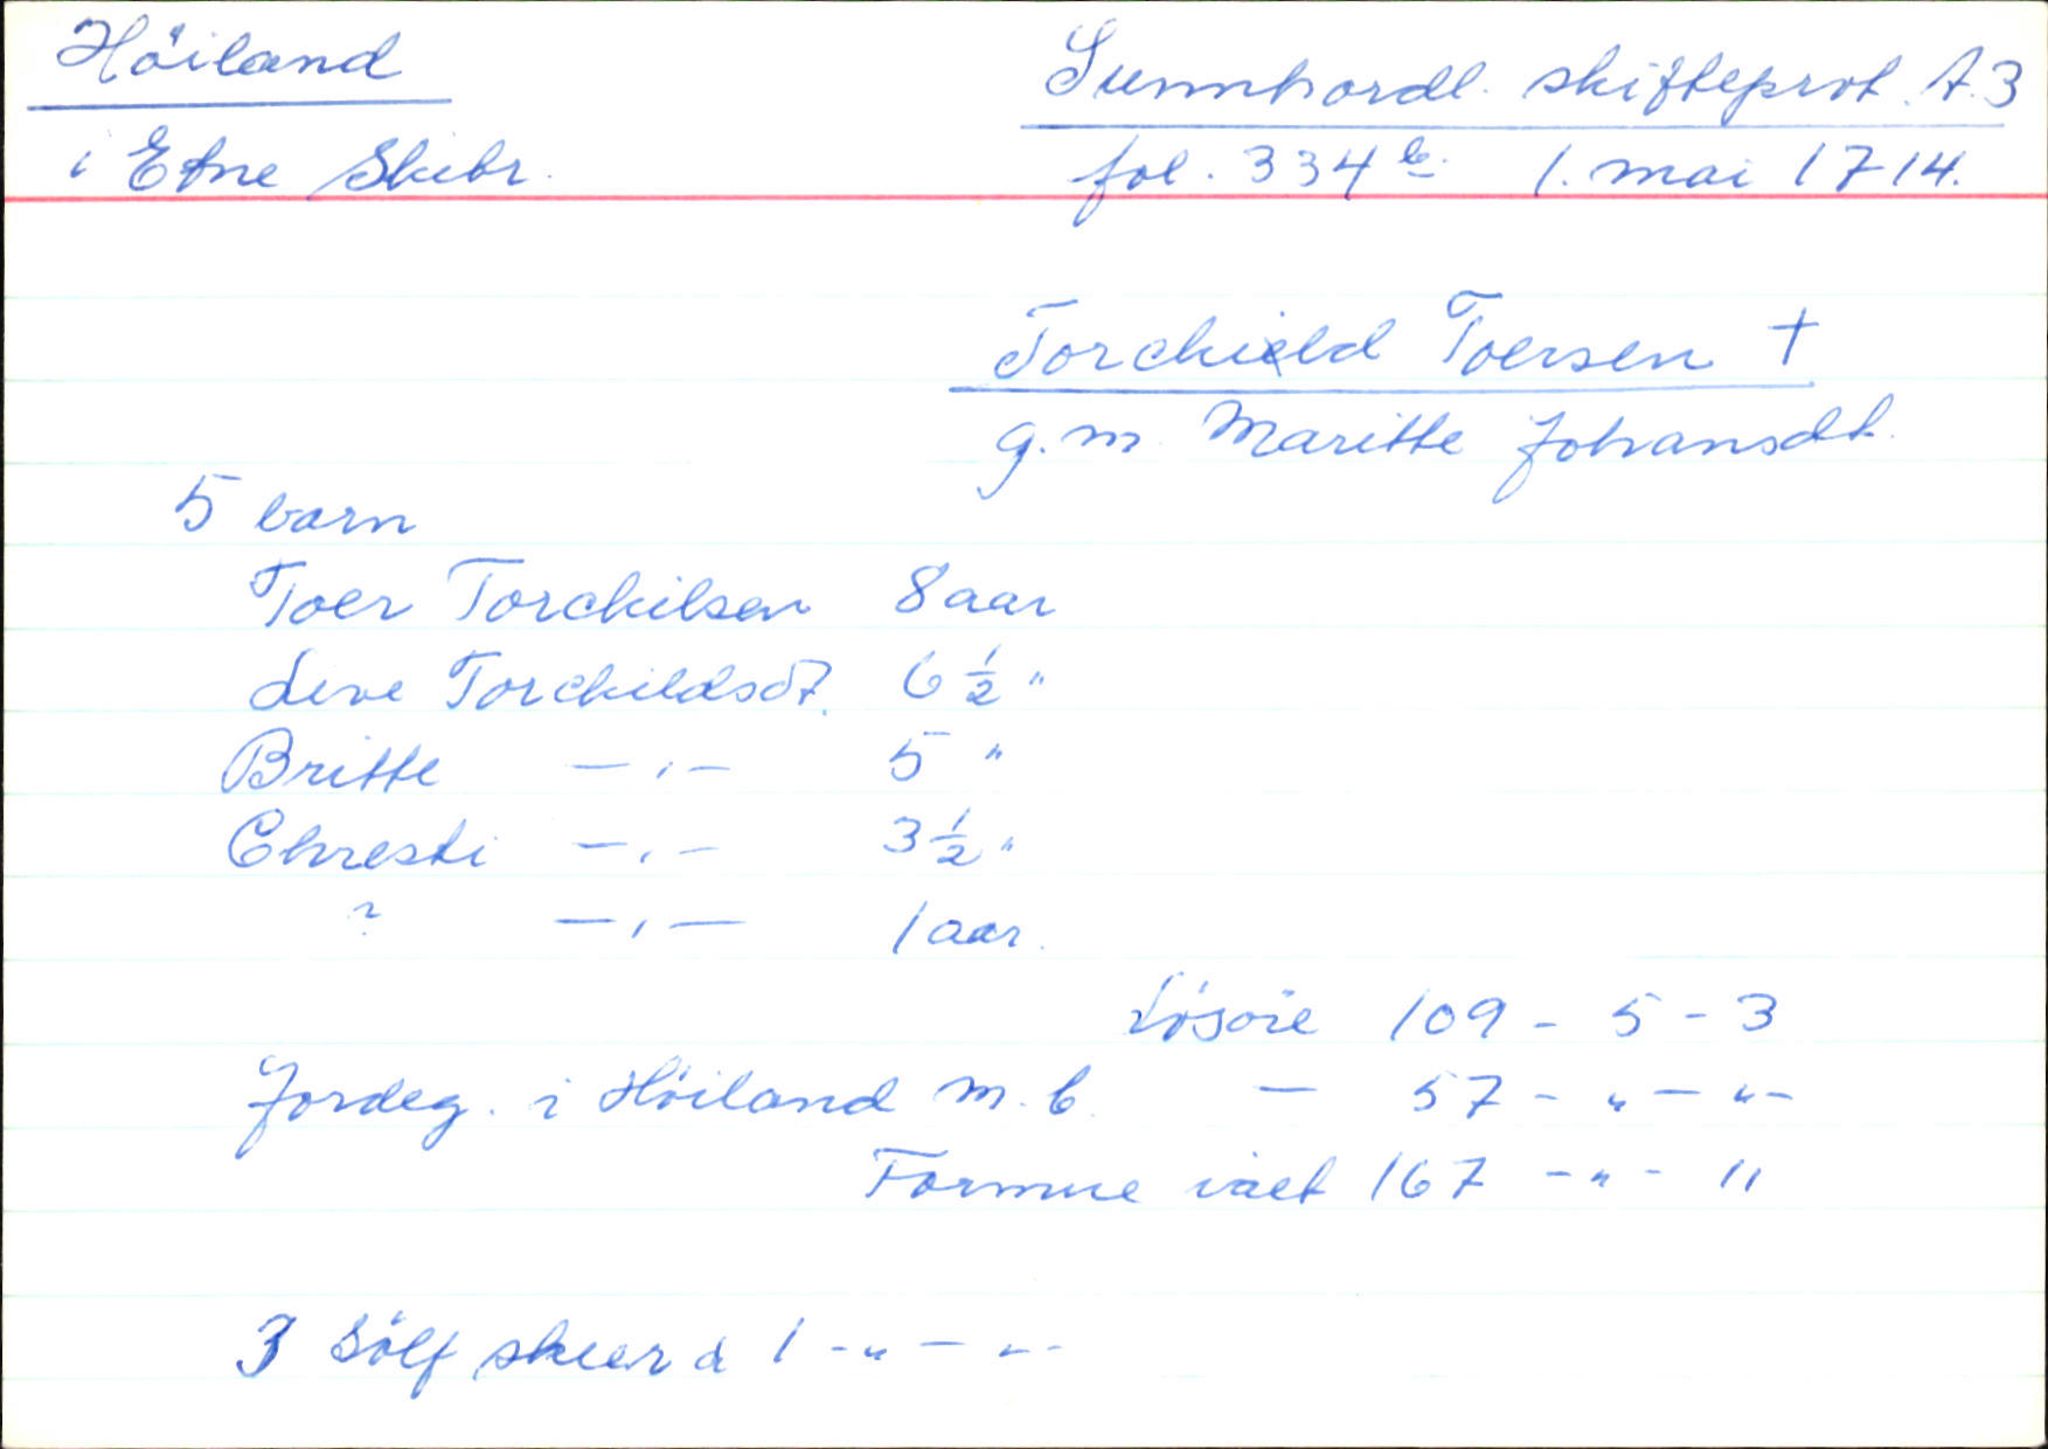 Höiland
i Etne Skibr.
Sunnhordl. skifteprot. A.3
fol. 334 b. 1. mai 1714.
Torchield Toersen †
g.m. Maritte Johansdt.
5 barn
Toer Torchilsen 8 aar
Live Torchildsdt. 6 1/2 "
Britte — , — 5 "
Chresti — , — 3 1/2 "
? — , — 1 aar.
Lösöre 109 - 5 - 3
Jordeg. i Höiland m.b. — 57 - " - " -
Formue ialt 167 - " - "
3 Sölf skeer a 1 - " - " -